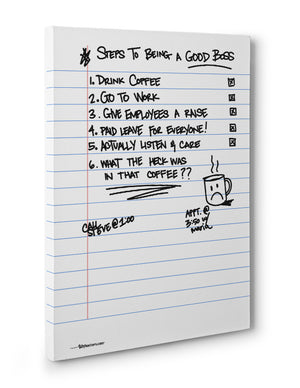 * STEPS TO BEING A GOOD BOSS
1. DRINK COFFEE
2. GO TO WORK
3. GIVE EMPLOYEES A RAISE
4. PAID LEAVE FOR EVERYONE!
5. ACTUALLY LISTEN & CARE
6. WHAT THE HECK WAS
IN THAT COFFEE??
CALL
STEVE @ 1:00
APPT. @
3:30 w/
maria